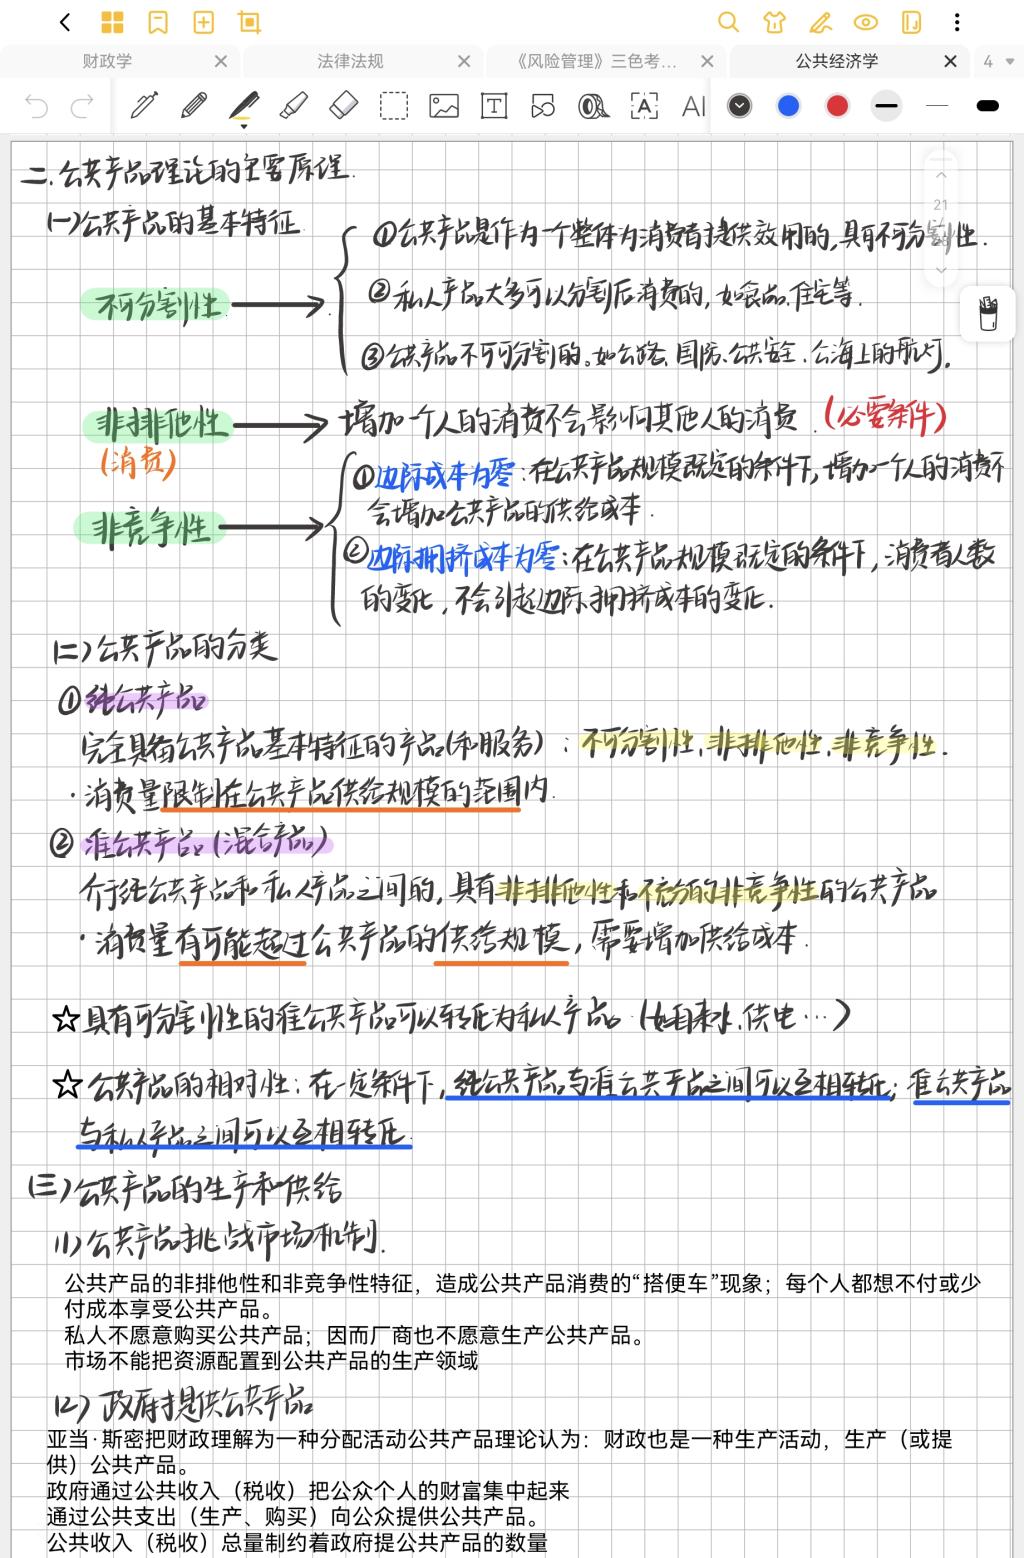 财政学
法律法规
《风险管理》三色考...
公共经济学
4
T
A
AI
21
二.公共产品理论的主要原理.
(一)公共产品的基本特征
①公共产品是作为一个整体为消费者提供效用的,具有不可分割性.
不可分割性
②私人产品大多可以分割后消费的,如食品.住宅等.
③公共产品不可分割的.如公路、国防.公共安全.公海上的航灯.
非排他性
增加一个人的消费不会影响其他人的消费.(必要条件)
(消费)
①边际成本为零:在公共产品规模既定的条件下,增加一个人的消费不
会增加公共产品的供给成本.
非竞争性
②边际拥挤成本为零:在公共产品规模既定的条件下,消费者人数
的变化,不会引起边际拥挤成本的变化.
(二)公共产品的分类
①纯公共产品
完全具备公共产品基本特征的产品(和服务):不可分割性、非排他性、非竞争性.
·消费量限制在公共产品供给规模的范围内.
②准公共产品(混合产品)
介于纯公共产品和私人产品之间的,具有非排他性和不充分的非竞争性的公共产品
·消费量有可能超过公共产品的供给规模,需要增加供给成本.
☆具有可分割性的准公共产品可以转化为私人产品.(如自来水.供电…)
☆公共产品的相对性:在一定条件下,纯公共产品与准公共产品之间可以互相转化;准公共产品
与私人产品之间可以互相转化.
(三)公共产品的生产和供给
(1)公共产品挑战市场机制.
公共产品的非排他性和非竞争性特征，造成公共产品消费的“搭便车”现象；每个人都想不付或少
付成本享受公共产品。
私人不愿意购买公共产品；因而厂商也不愿意生产公共产品。
市场不能把资源配置到公共产品的生产领域
(2)政府提供公共产品
亚当·斯密把财政理解为一种分配活动公共产品理论认为：财政也是一种生产活动，生产（或提
供）公共产品。
政府通过公共收入（税收）把公众个人的财富集中起来
通过公共支出（生产、购买）向公众提供公共产品。
公共收入（税收）总量制约着政府提公共产品的数量